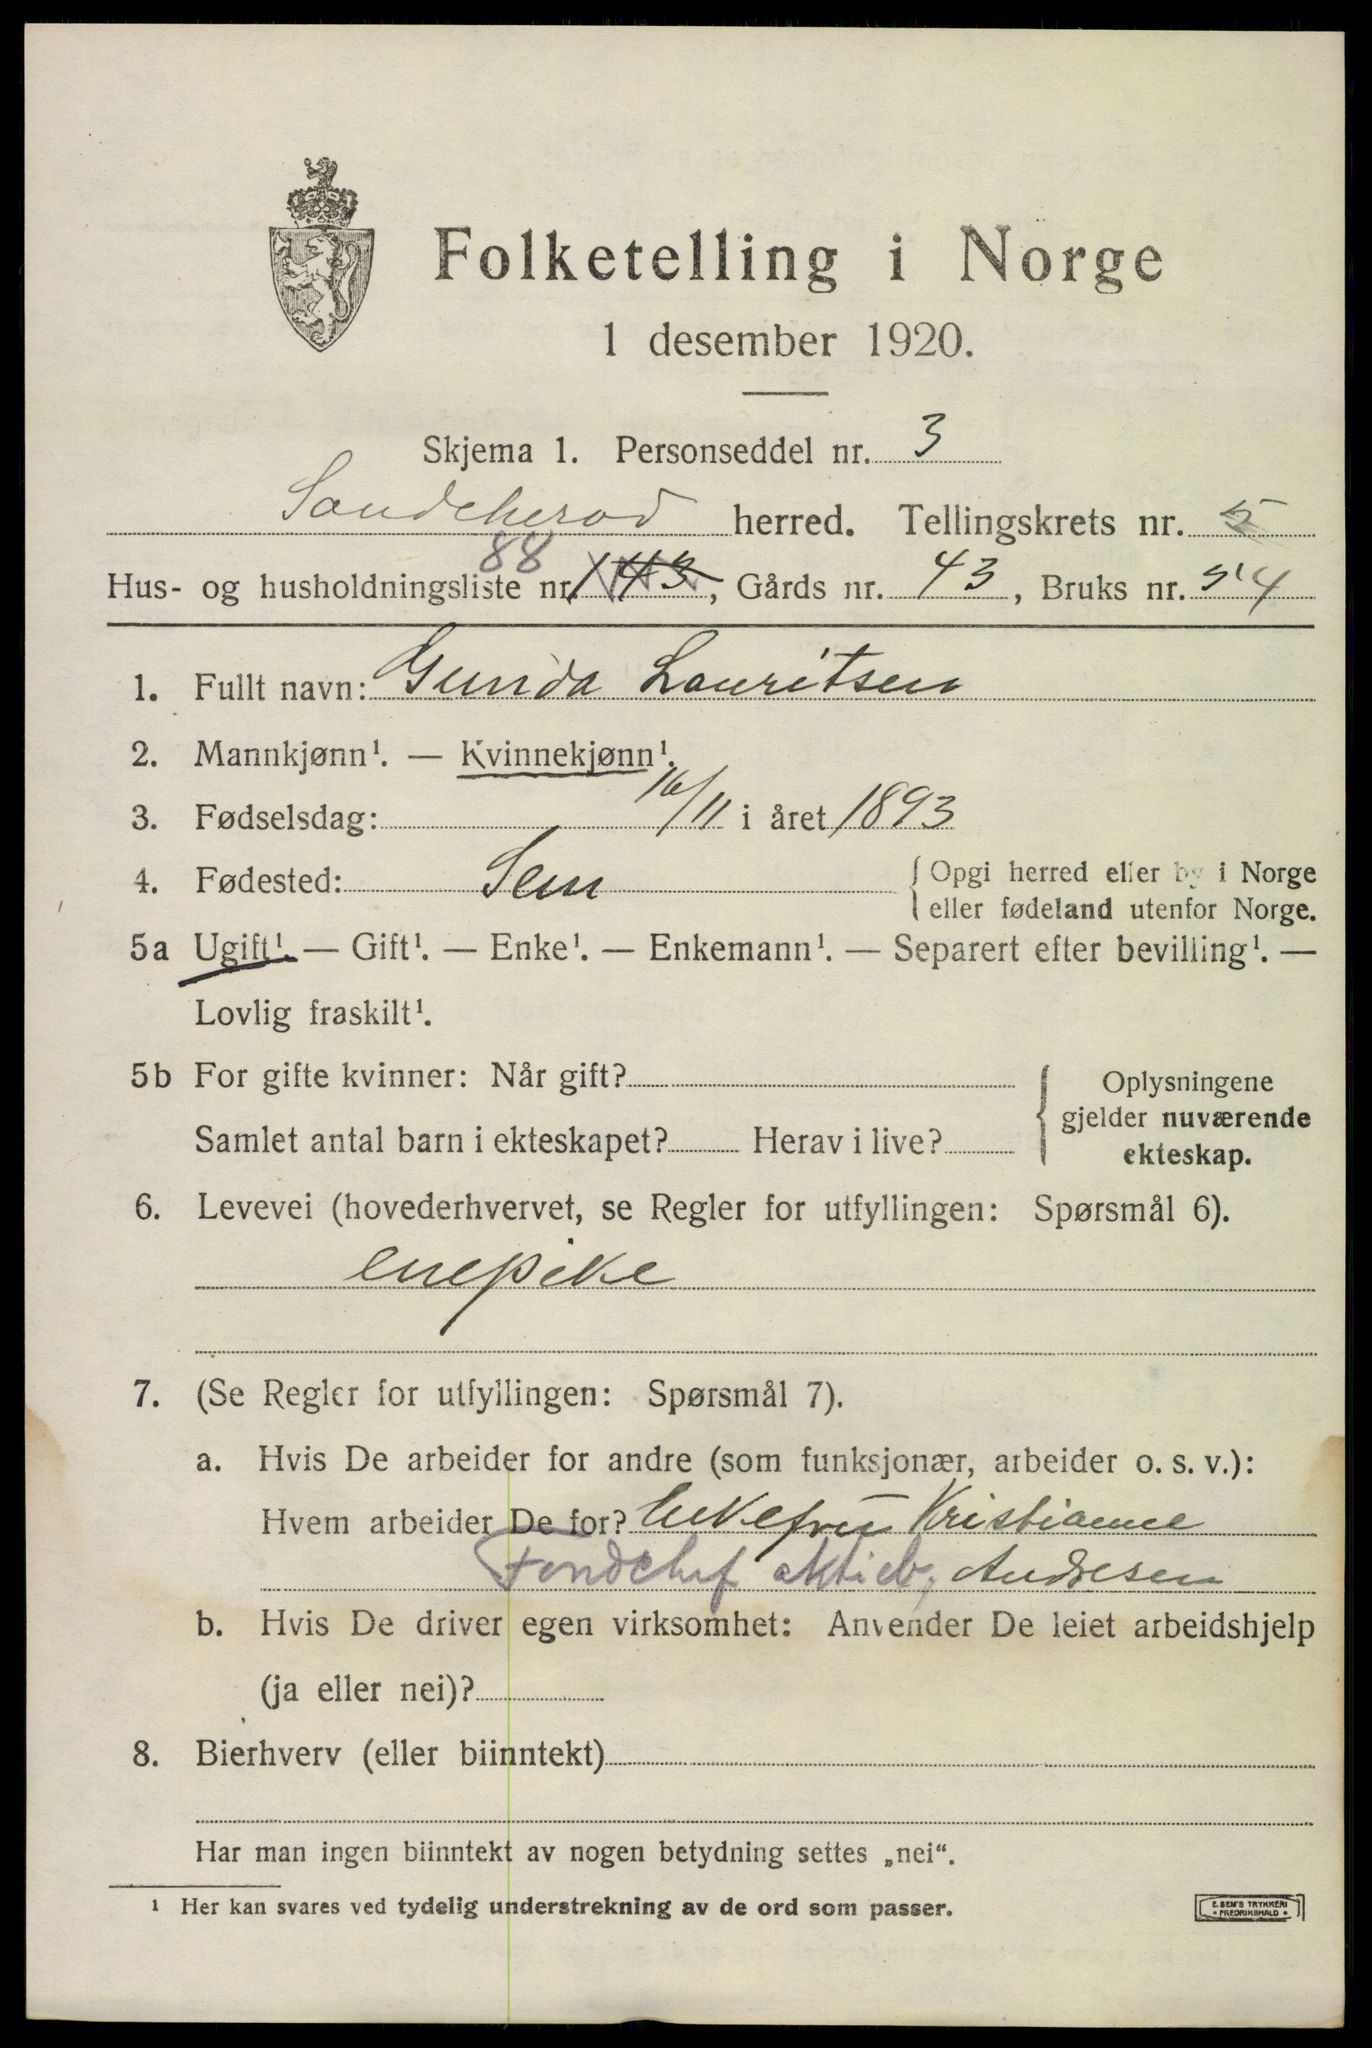 Folketelling i Norge
1 desember 1920.
Skjema 1. Personseddel nr. 3
Sandeherad herred. Tellingskrets nr. 5
88
Hus- og husholdningsliste nr. 143, Gårds nr. 43, Bruks nr. 54
1. Fullt navn: Gunda Lauritsen
2. Mannkjønn¹. — Kvinnekjønn¹.
3. Fødselsdag: 16/11 i året 1893
4. Fødested: Sem { Opgi herred eller by i Norge
eller fødeland utenfor Norge.
5a Ugift¹. — Gift¹. — Enke¹. — Enkemann¹. — Separert efter bevilling¹. —
Lovlig fraskilt¹.
5b For gifte kvinner: Når gift?
Samlet antal barn i ekteskapet? Herav i live?
Oplysningene
gjelder nuværende
ekteskap.
6. Levevei (hovederhvervet, se Regler for utfyllingen: Spørsmål 6).
enepike
7. (Se Regler for utfyllingen: Spørsmål 7).
a. Hvis De arbeider for andre (som funksjonær, arbeider o. s. v.):
Hvem arbeider De for? Enkefru Kristianne
aktieb, Andresen
b. Hvis De driver egen virksomhet: Anvender De leiet arbeidshjelp
(ja eller nei)?
8. Bierhverv (eller biinntekt)
Har man ingen biinntekt av nogen betydning settes „nei“.
¹ Her kan svares ved tydelig understrekning av de ord som passer.
E. SEM'S TRYKKERI
• FREDRIKSHALD •